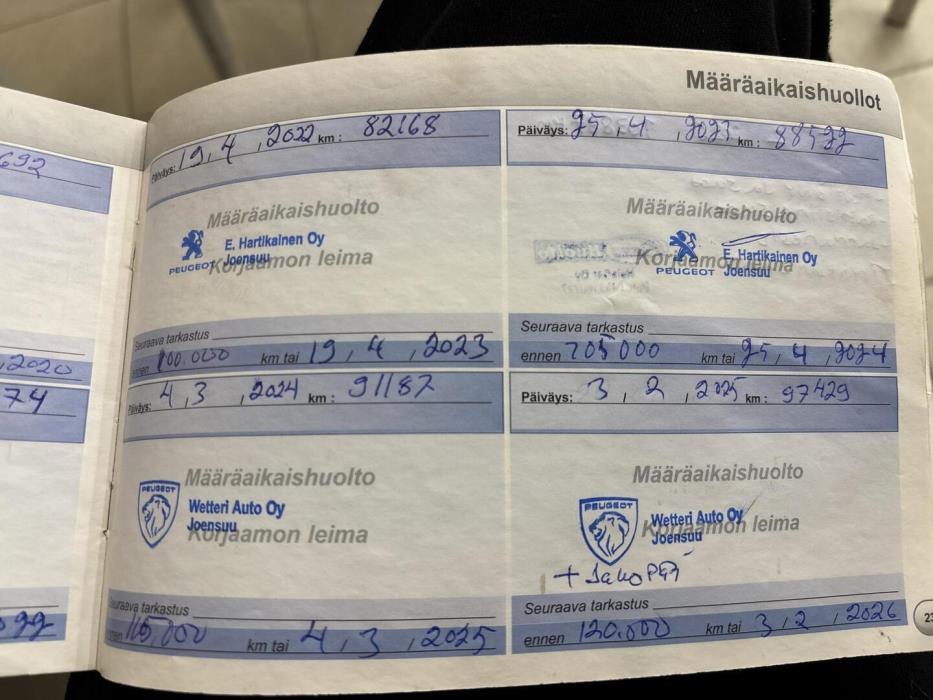 Määräaikaishuollot
692
2020
74
Päiväys: 19, 4, 2022 km: 82168
Määräaikaishuolto
PEUGEOT
E. Hartikainen Oy
Joensuu
Korjaamon leima
Seuraava tarkastus
ennen 100.000 km tai 19, 4, 2023
Päiväys: 25, 4, 2023 km:
Määräaikaishuolto
PEUGEOT
E. Hartikainen Oy
Joensuu
Korjaamon leima
Seuraava tarkastus
ennen 105000 km tai 25, 4, 2024
Päiväys: 4, 3, 2024 km: 91187
Määräaikaishuolto
PEUGEOT
Wetteri Auto Oy
Joensuu
Korjaamon leima
Seuraava tarkastus
ennen 115.000 km tai 4, 3, 2025
Päiväys: 3, 2, 2025 km: 97429
Määräaikaishuolto
PEUGEOT
Wetteri Auto Oy
Joensuu
Korjaamon leima
+ Jakopää
Seuraava tarkastus
ennen 120.000 km tai 3, 2, 2026
23